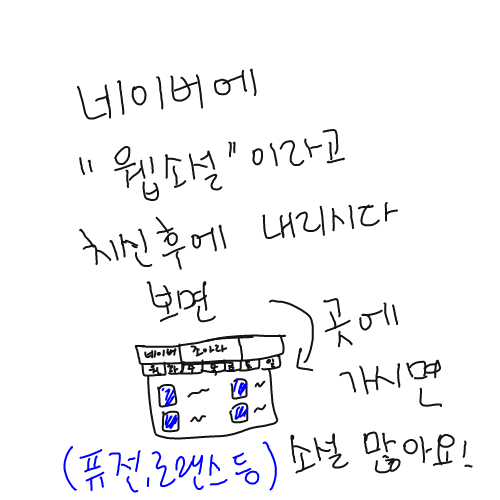 네이버에
"웹소설"이라고
치신후에 내리시다
보면
네이버 조아라
월 화 수 목 금 토 일
곳에
가시면
(퓨전,로맨스등) 소설 많아요!